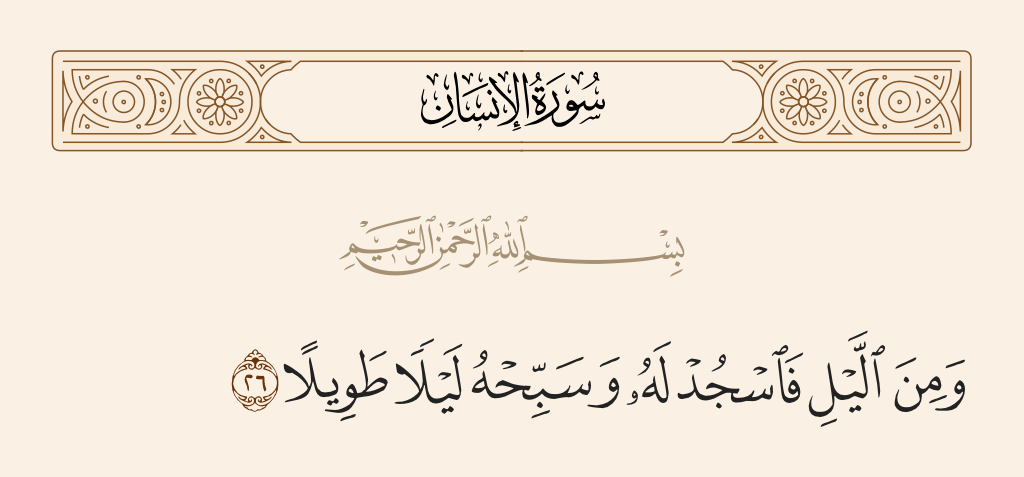 سُورَةُ الإِنسَانِ
بِسْمِ ٱللَّهِ ٱلرَّحْمَٰنِ ٱلرَّحِيمِ
وَمِنَ ٱلَّيْلِ فَٱسْجُدْ لَهُۥ وَسَبِّحْهُ لَيْلًا طَوِيلًا ٢٦